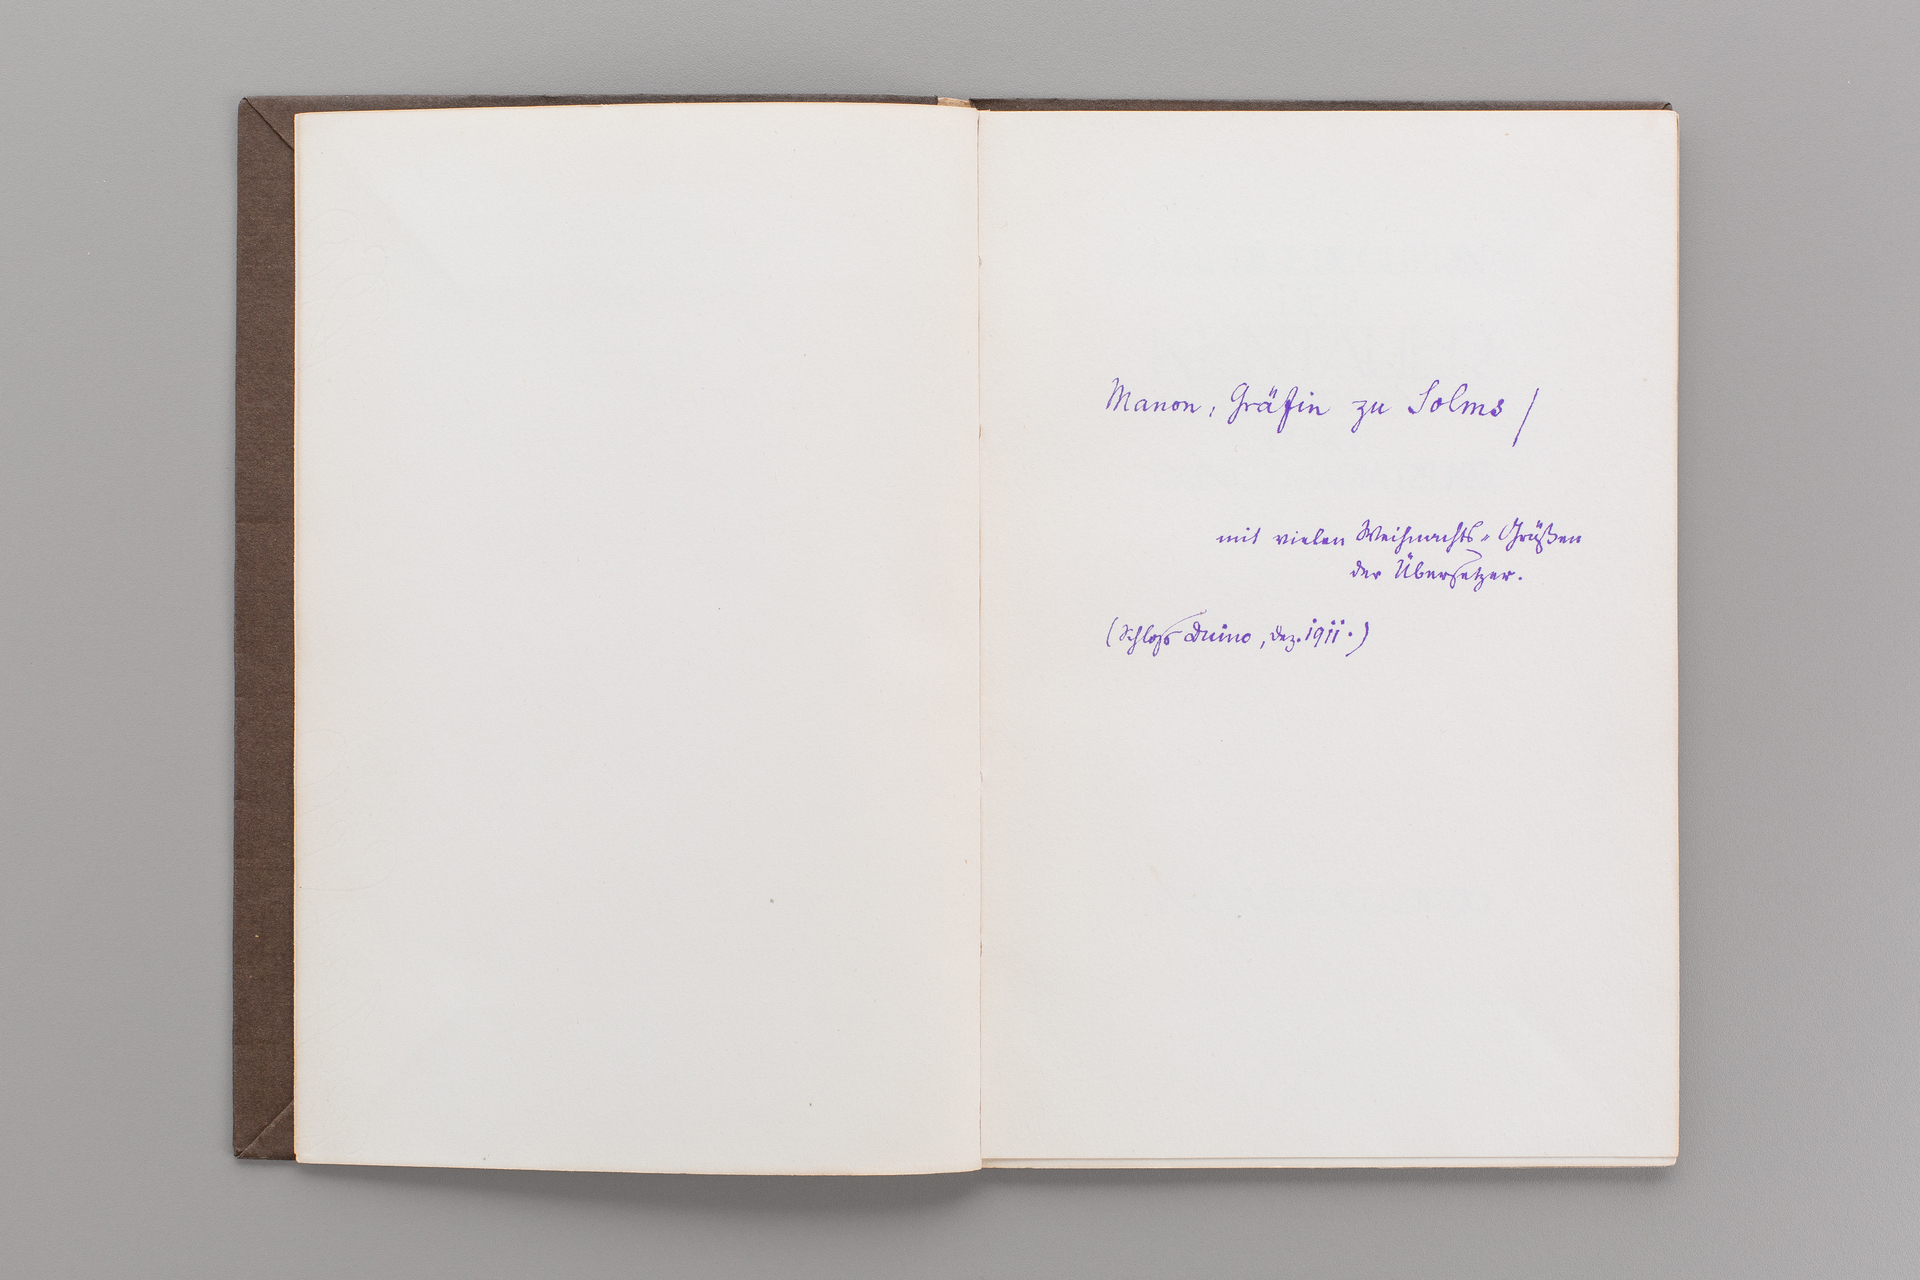 Manon, Gräfin zu Solms /
mit vielen Weihnachts-Grüßen
der Übersetzer.
(Schloß Duino, Dez. 1911.)